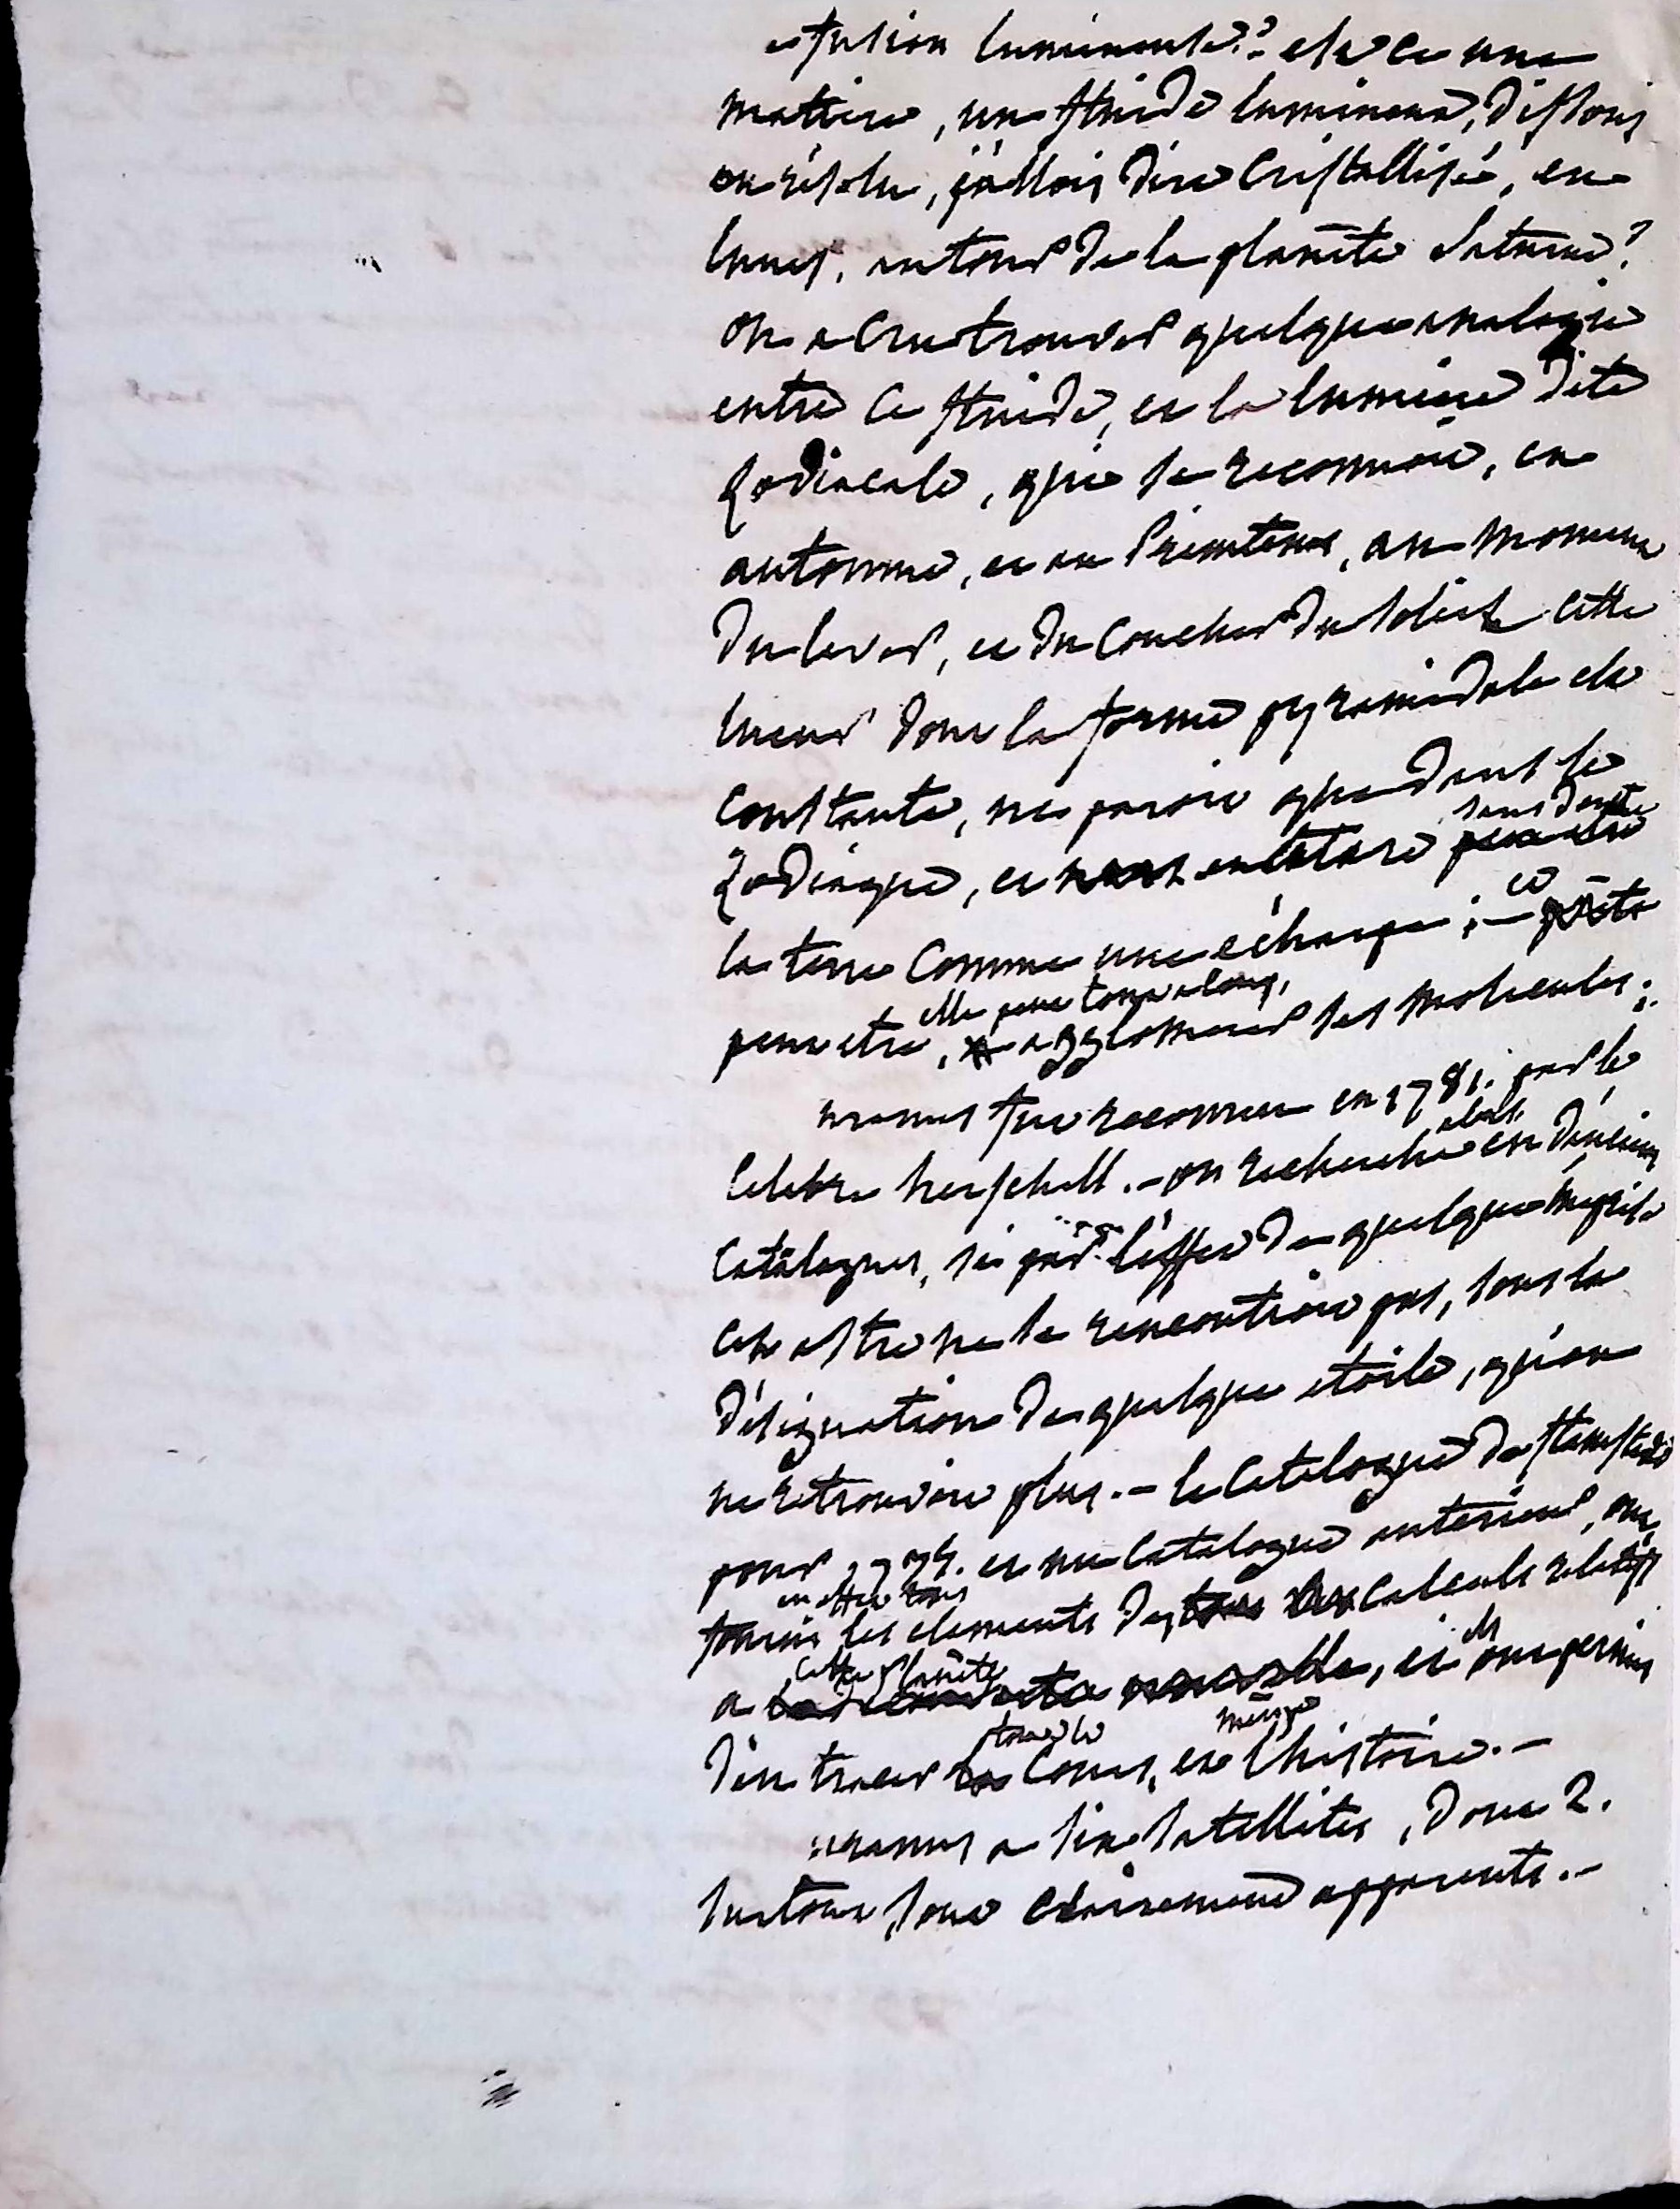 effusion lumineuse ?? est ce une
matiere, un fluide lumineux, dissous
ou résolu, j'allois dire cristallisé, en
lunes, autour de la planète Saturne ?
on a cru trouver quelque analogie
entre ce fluide, et la lumiere dite
zodiacale, qui se reconnoit, en
automne, et au Printems, au moment
du lever, et du coucher du soleil cette
lueur dont la forme pyramidale est
constante, ne paroit que dans le
sans doute
Zodiaque, et entoure peut etre
la terre comme une écharpe ; - et
elle peut tout a coup,
peut etre, agglomerer ses molecules ;
uranus fut reconnu en 1781. par le
alors
celebre herschell. - on rechercha en d'anciens
catalogues, si par l'effet de quelque méprise
cet astre ne se rencontroit pas, sous la
désignation de quelque étoile, qu'on
ne retrouvoit plus. - le catalogue de flamsteed
pour et un catalogue anterieur, ont
en effet tous
fourni les elements des calculs relatifs
cette planète
a et ils ont permis
tout le même
d'en tracer cours, et l'histoire. -
uranus a six satellites, dont 2.
surtout, sont clairement apparents. -